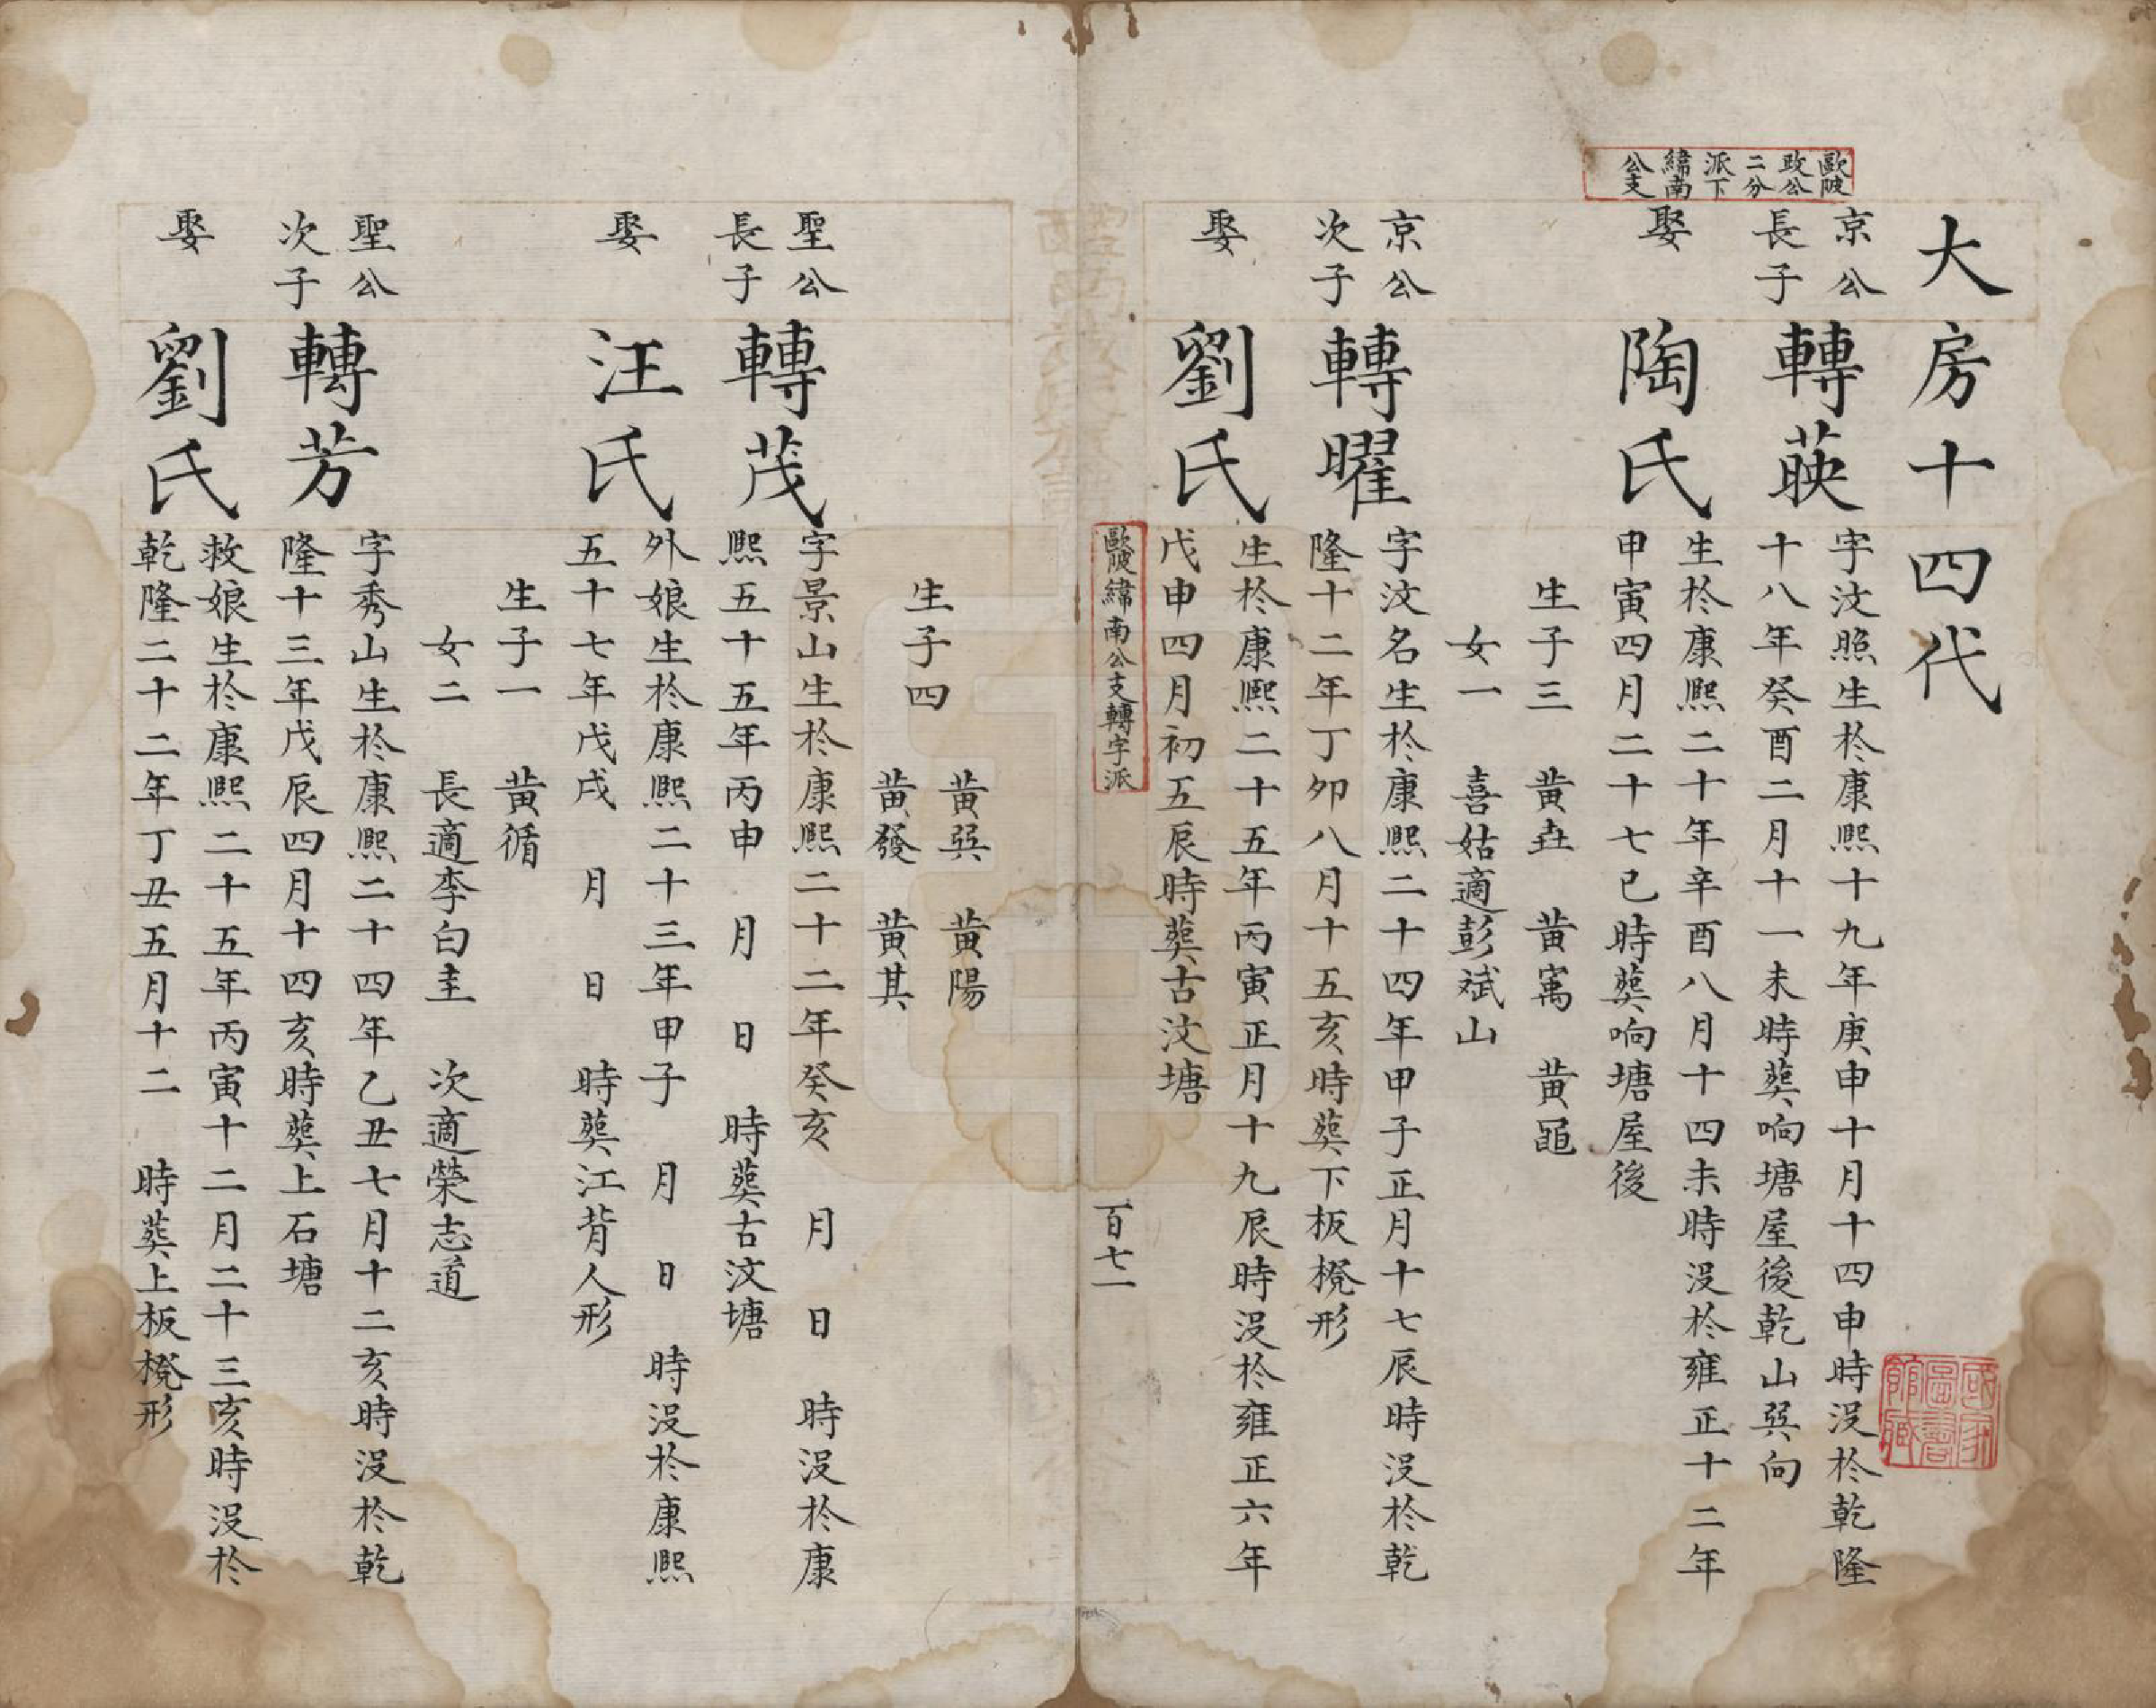 歐陂政公二分派下緯南公支
大房十四代
京公長子
轉䕋
字汶照生於康熙十九年庚申十月十四申時沒於乾隆
十八年癸酉二月十一未時塟响塘屋後乾山巽向
娶
陶氏
生於康熙二十年辛酉八月十四未時沒於雍正十二年
甲寅四月二十七巳時塟响塘屋後
生子三 黃壵 黃寯 黃黽
女一 喜姑適彭斌山
京公次子
轉曜
字汶名生於康熙二十四年甲子正月十七辰時沒於乾
隆十二年丁卯八月十五亥時塟下板櫈形
娶
劉氏
生於康熙二十五年丙寅正月十九辰時沒於雍正六年
戊申四月初五辰時塟古汶塘
歐陂緯南公支轉字派
百七一
生子四
黃巽 黃陽
黃發 黃其
聖公長子
轉茂
字景山生於康熙二十二年癸亥 月 日 時沒於康
熙五十五年丙申 月 日 時塟古汶塘
娶
汪氏
外娘生於康熙二十三年甲子 月 日 時沒於康熙
五十七年戊戌 月 日 時塟江背人形
生子一 黃循
女二 長適李白圭 次適榮志道
聖公次子
轉芳
字秀山生於康熙二十四年乙丑七月十二亥時沒於乾
隆十三年戊辰四月十四亥時塟上石塘
娶
劉氏
救娘生於康熙二十五年丙寅十二月二十三亥時沒於
乾隆二十二年丁丑五月十二 時塟上板櫈形
國家圖書館藏